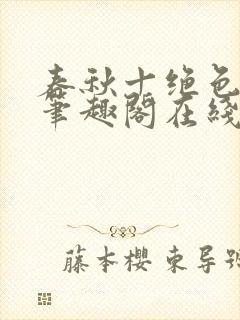 春秋十绝色
笔趣阁在线
藤本樱 东导